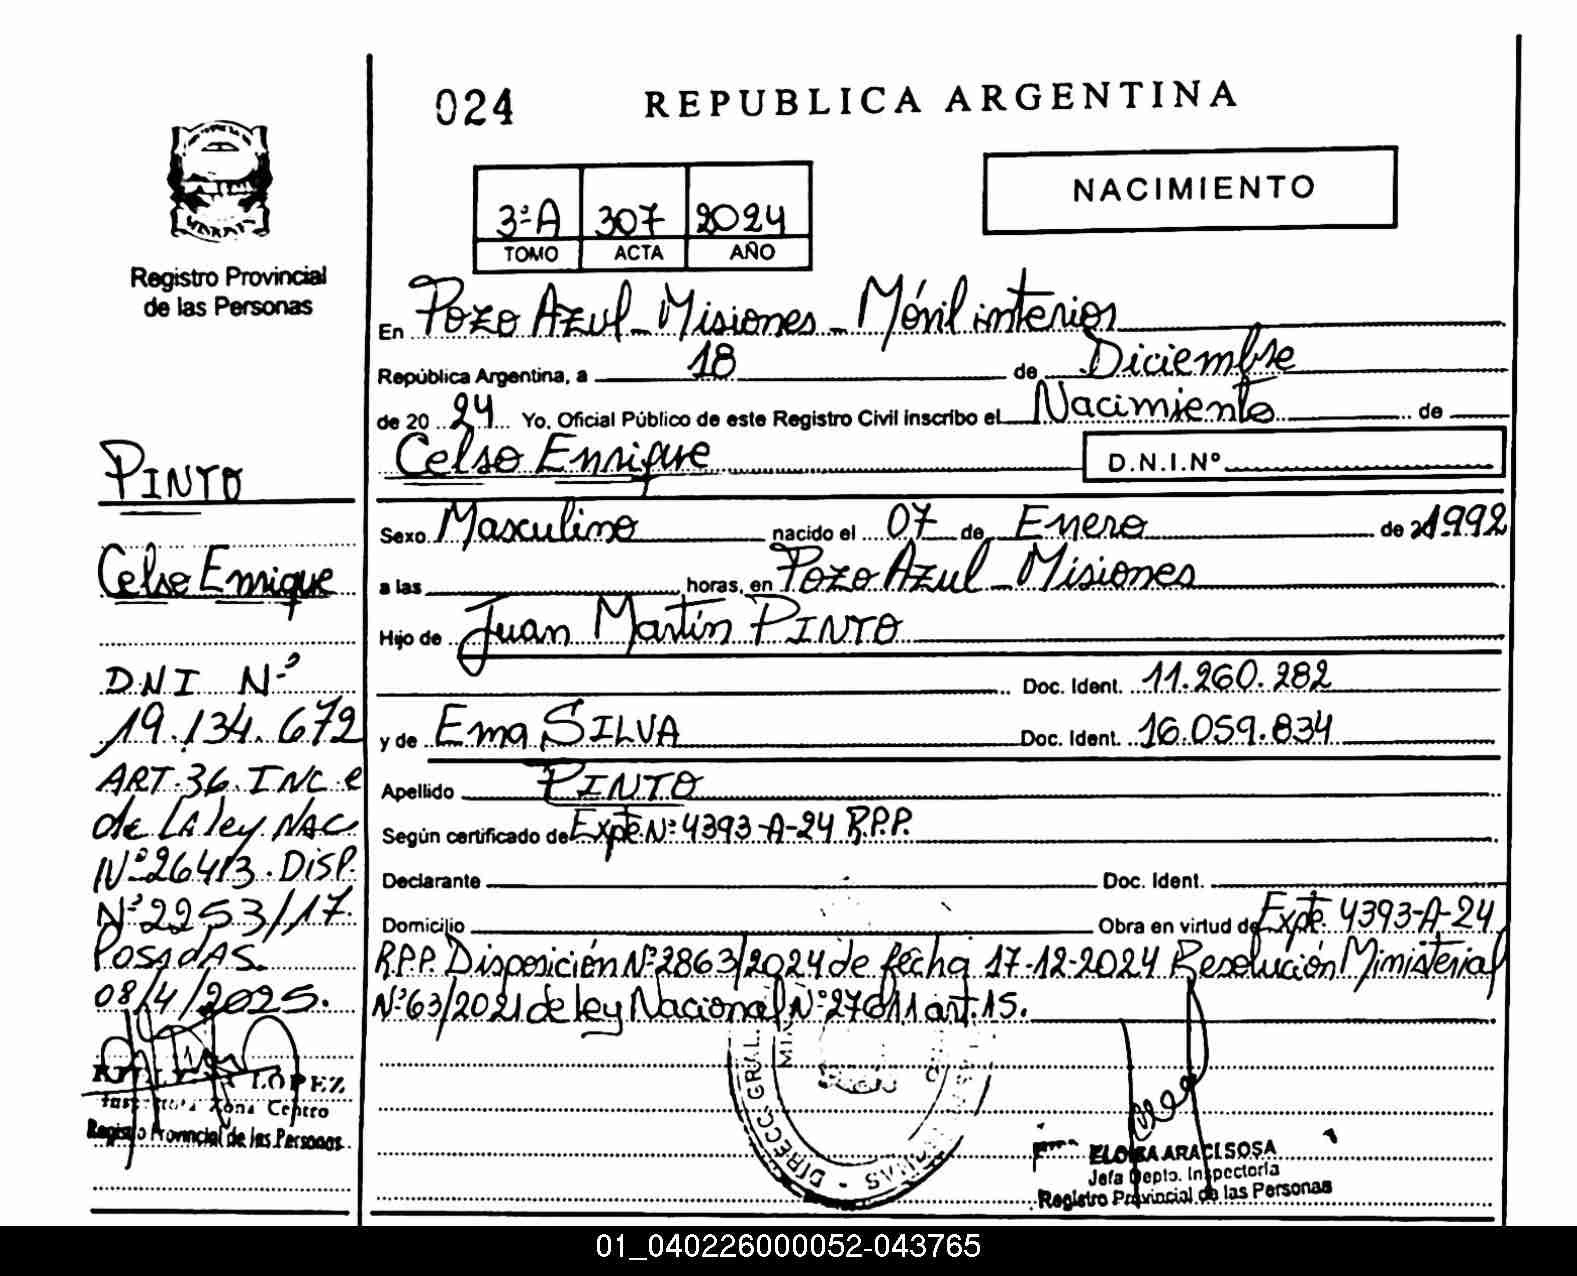 024 REPUBLICA ARGENTINA
NACIMIENTO
3ª A 307 2024
TOMO ACTA AÑO
Registro Provincial
de las Personas
En Pozo Azul - Misiones - Móvil interior
República Argentina, a 18 de Diciembre
de 20 24 Yo, Oficial Público de este Registro Civil inscribo el Nacimiento de
Celso Enrique D.N.I.Nº
Sexo Masculino nacido el 07 de Enero de 1992
a las horas, en Pozo Azul - Misiones
Hijo de Juan Martín PINTO
Doc. Ident. 11.260.282
y de Ema SILVA Doc. Ident. 16.059.834
Apellido PINTO
Según certificado de Expte. Nº 4393-A-24 R.P.P.
Declarante Doc. Ident.
Domicilio Obra en virtud de Expte. 4393-A-24
R.P.P. Disposición Nº 2863/2024 de fecha 17-12-2024 Resolución Ministerial
Nº 63/2021 de ley Nacional Nº 27611 art. 15.
PINTO
Celso Enrique
DNI Nº
19.134.672
ART. 36. INC e
de LA ley NAC
Nº 26413. DISP.
Nº 2253/17.
POSADAS.
08/4/2025.
LOPEZ
Zona Centro
Registro Provincial de las Personas
DIRECC. GRAL.
ELOISA ARACI SOSA
Jefa Depto. Inspectoría
Registro Provincial de las Personas
01_040226000052-043765